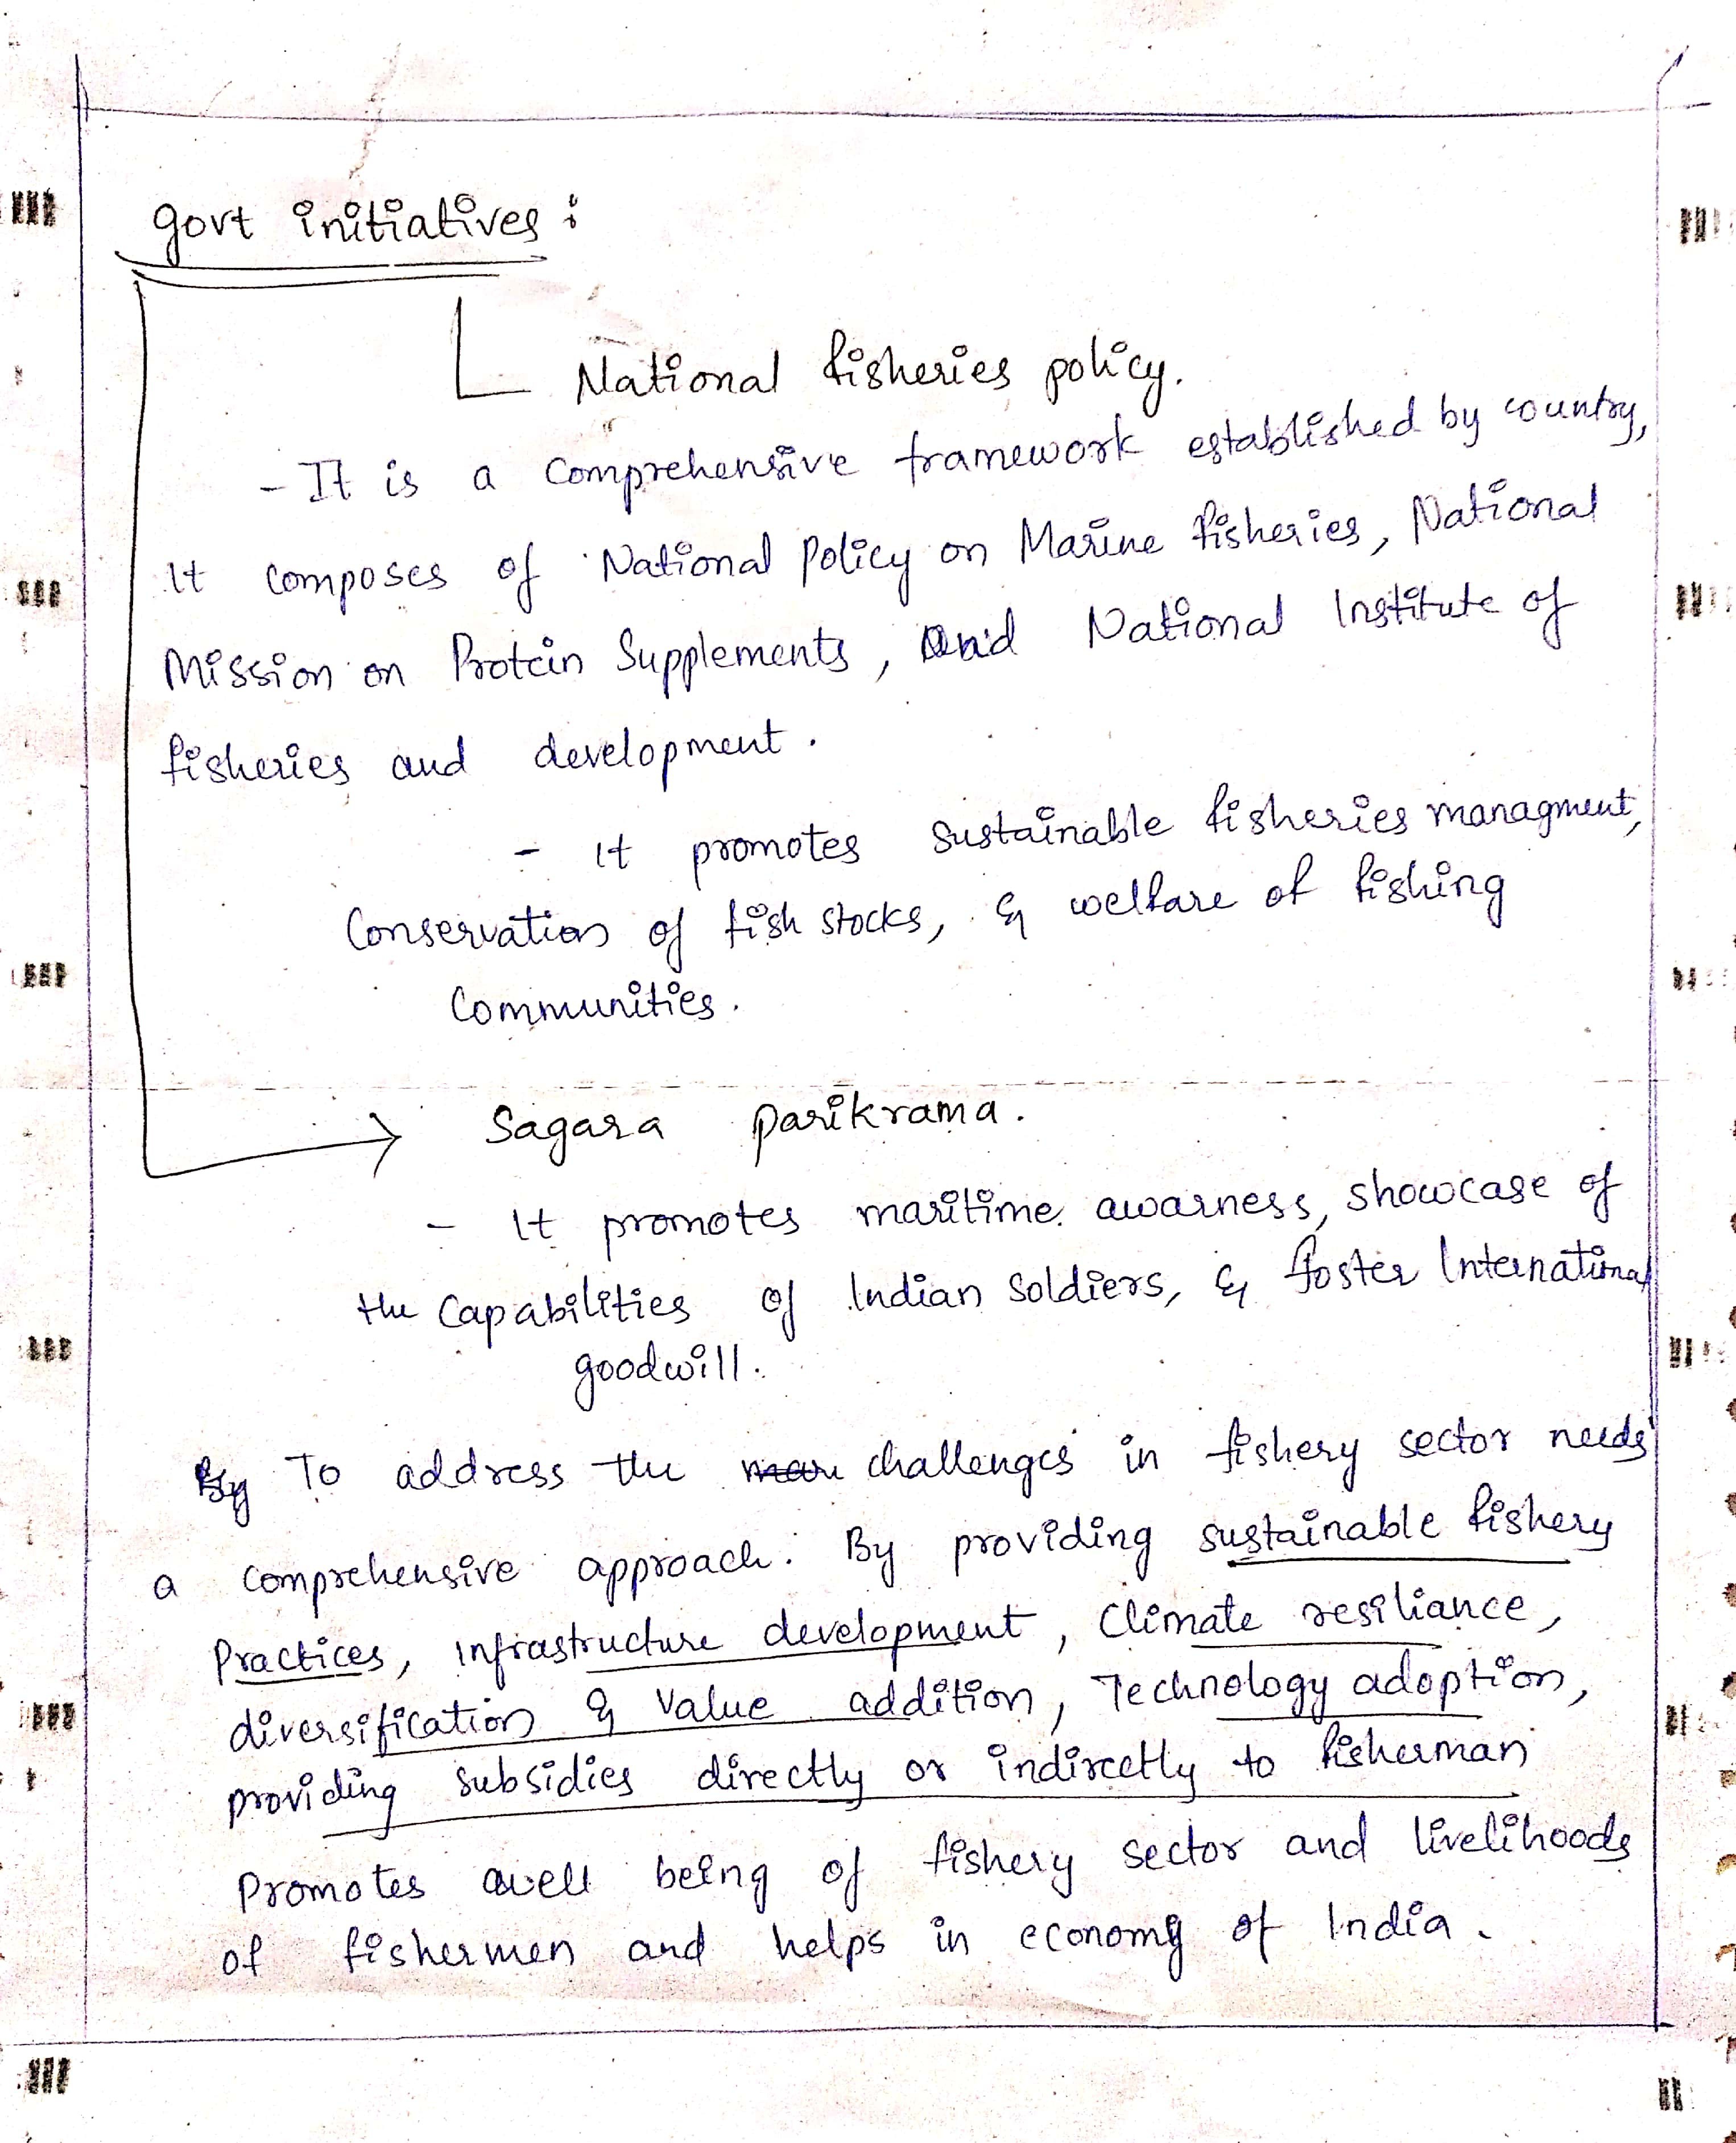 govt initiatives :
National fisheries policy.
- It is a comprehensive framework established by country,
It composes of National Policy on Marine fisheries, National
Mission on Protein Supplements, and National Institute of
fisheries and development.
- It promotes sustainable fisheries managment,
Conservation of fish stocks, & welfare of fishing
Communities.
Sagara parikrama.
- It promotes maritime awarness, showcase of
the Capabilities of Indian Soldiers, & foster International
goodwill.
By To address the challenges in fishery sector needs
a comprehensive approach. By providing sustainable fishery
Practices, infrastructure development, Climate resiliance,
diversification & Value addition, Technology adoption,
providing subsidies directly or indirectly to fisherman
Promotes well being of fishery sector and livelihoods
of fishermen and helps in economy of India.